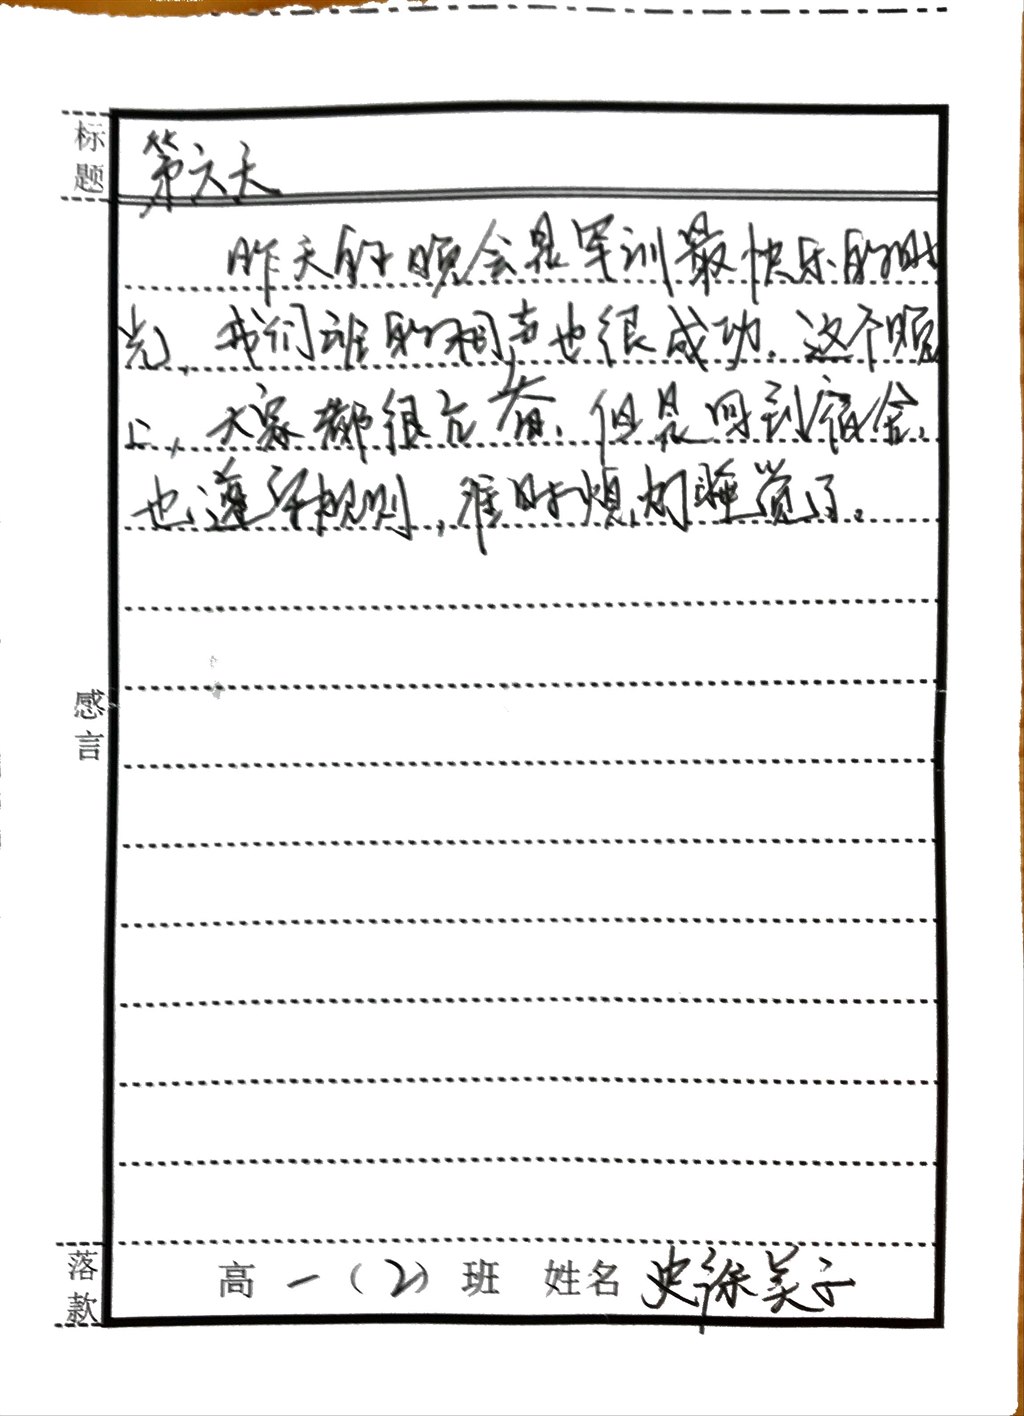 标题
第六天
昨天的晚会是军训最快乐的时
光，我们班的相声也很成功。这个晚
上，大家都很亢奋，但是回到宿舍，
也遵守规则，准时熄灯睡觉了。
感言
落款
高一（2）班 姓名 史徐昊子